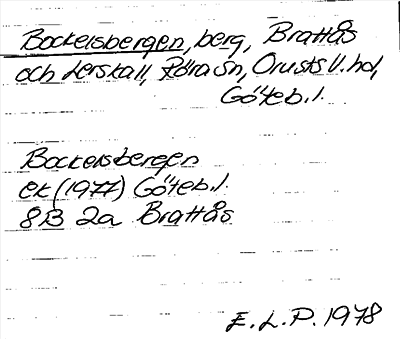 Bockelsbergen, berg, Brattås
och Lerskall, Röra sn, Orusts V. hd,
Göteb. l.
Bockelsbergen
ek (1977) Göteb. l.
8B 2a Brattås
E. L. P. 1978